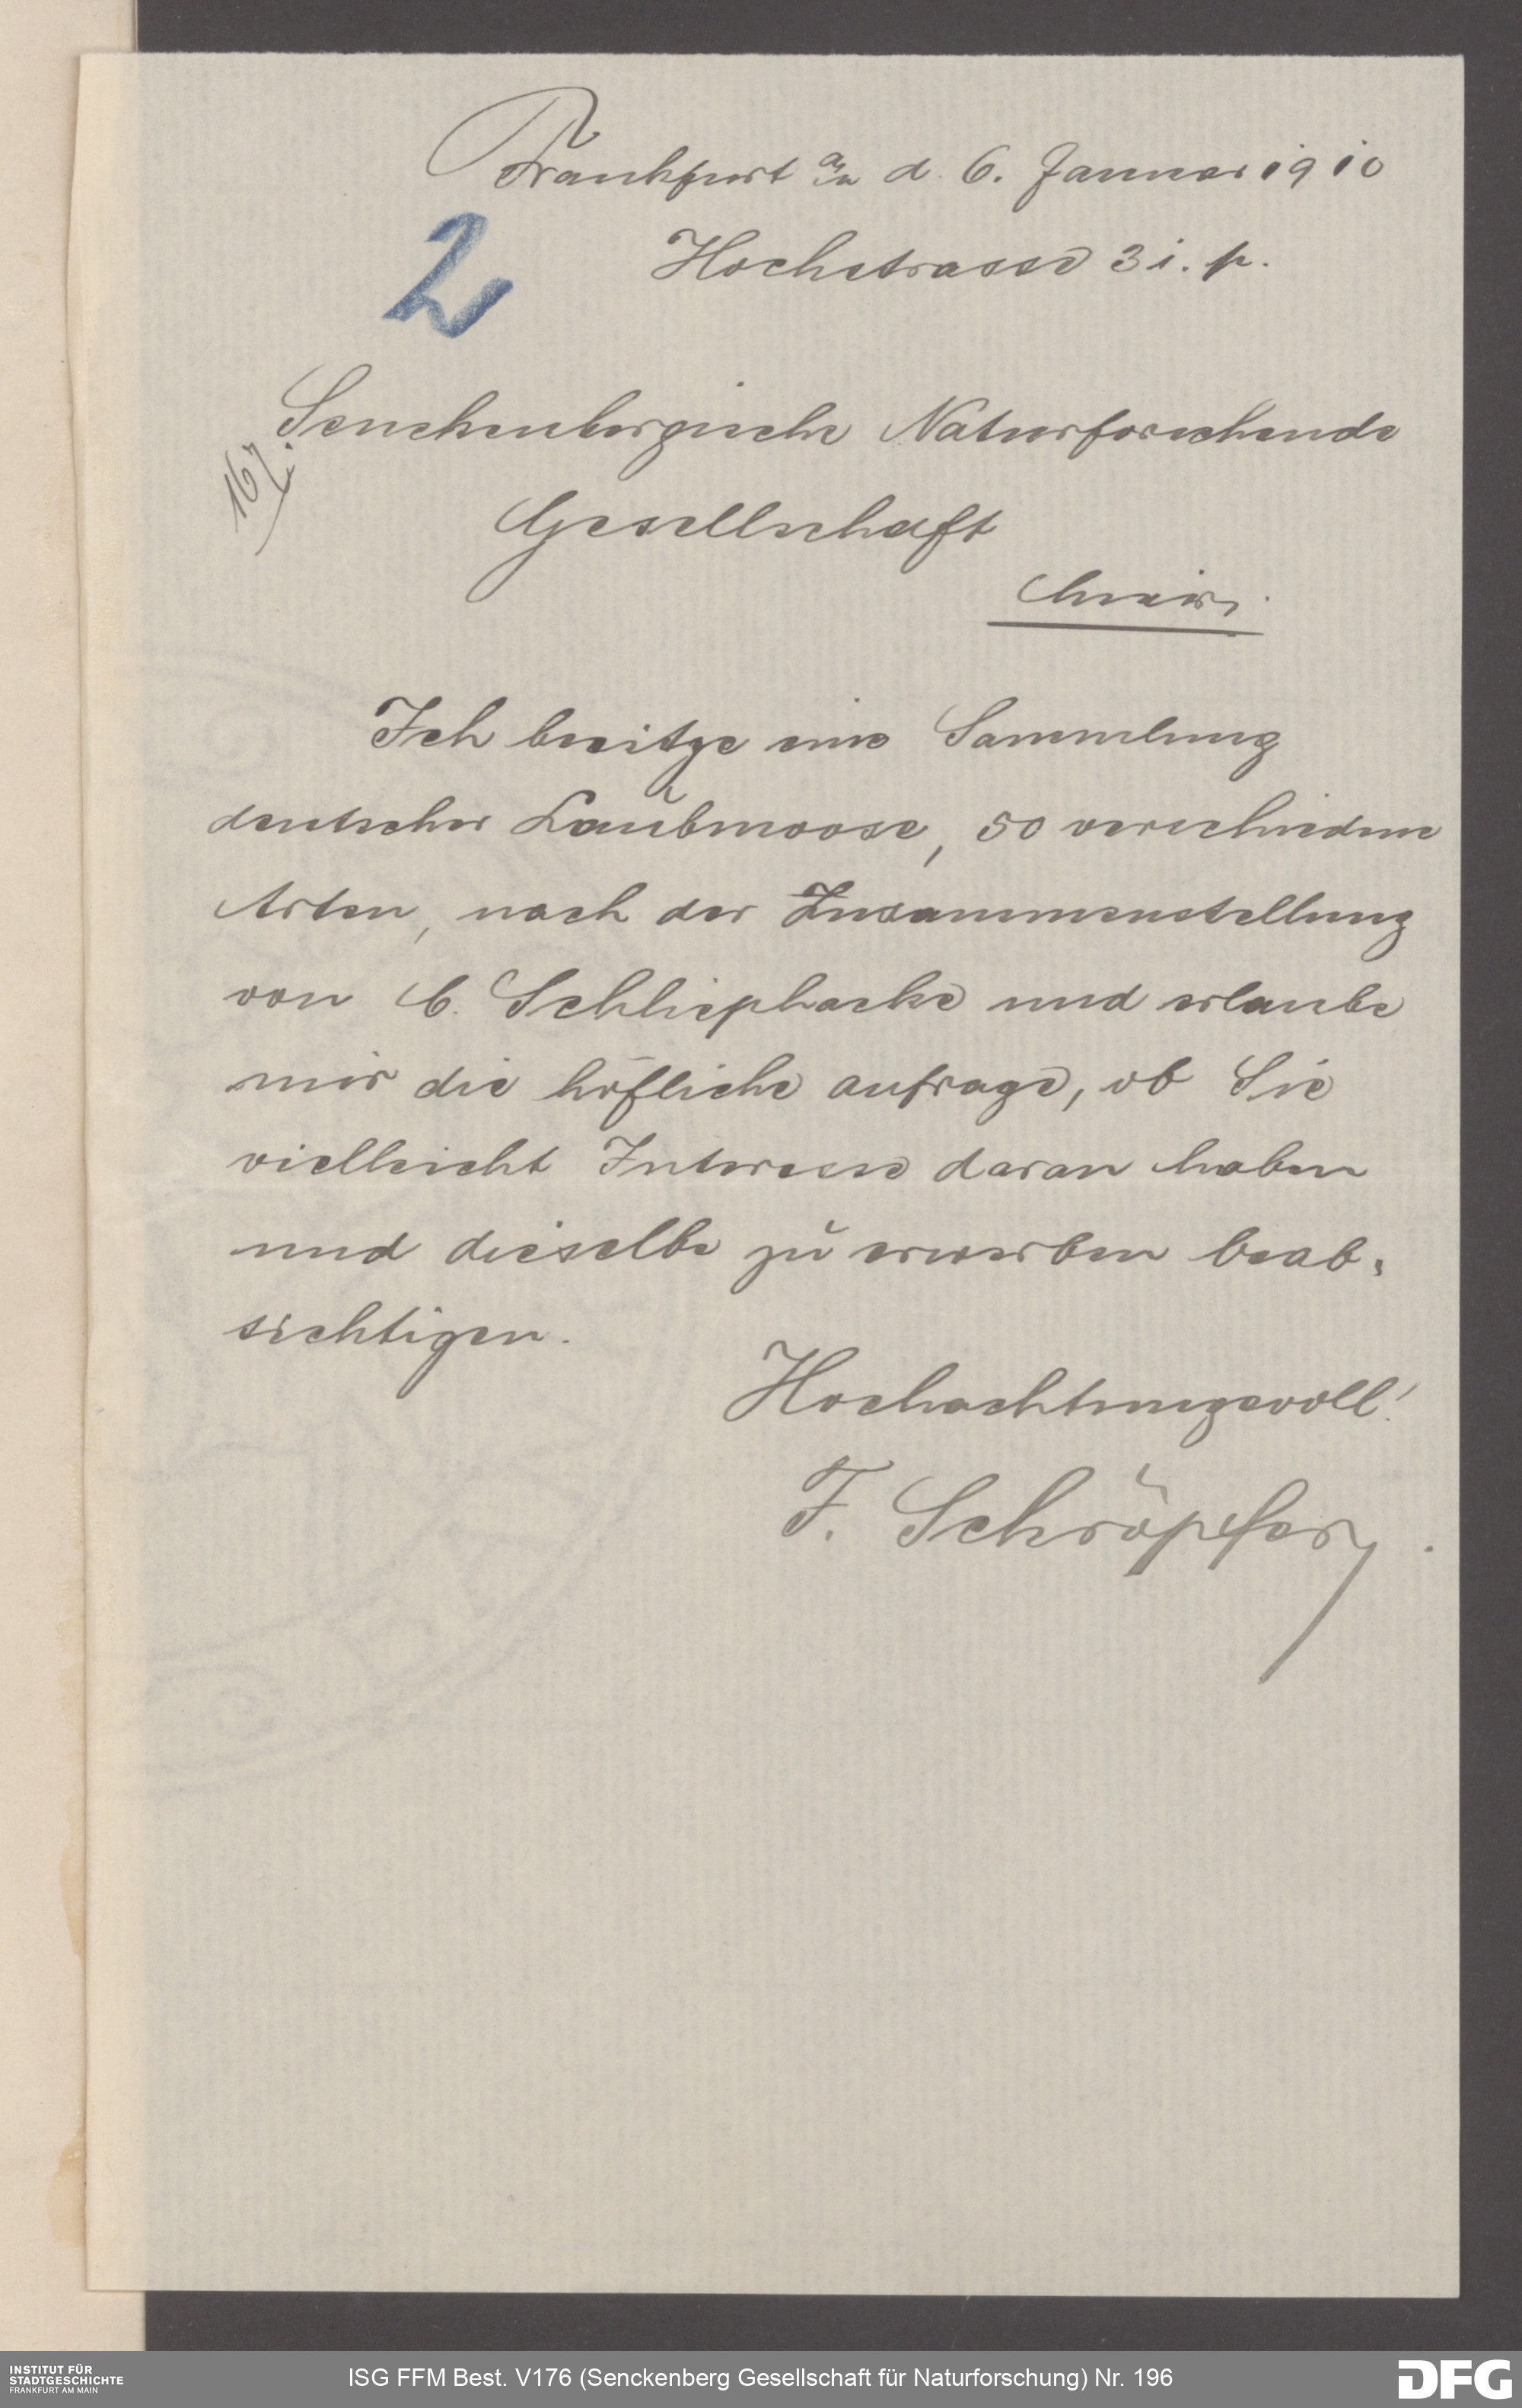 Frankfurt a/m d. 6. Januar 1910
Hochstrasse 31. p.
2
Senckenbergische Naturforschende
167.
Gesellschaft
hier.
Ich besitze eine Sammlung
deutscher Laubmoose, 50 verschiedene
Arten, nach der Zusammenstellung
von C. Schliephacke und erlaube
mir die höfliche anfrage, ob Sie
vielleicht Interesse daran haben
und dieselbe zu erwerben beab-
sichtigen.
Hochachtungsvoll!
F. Schröpfer.
INSTITUT FÜR
STADTGESCHICHTE
FRANKFURT AM MAIN
ISG FFM Best. V176 (Senckenberg Gesellschaft für Naturforschung) Nr. 196
DFG